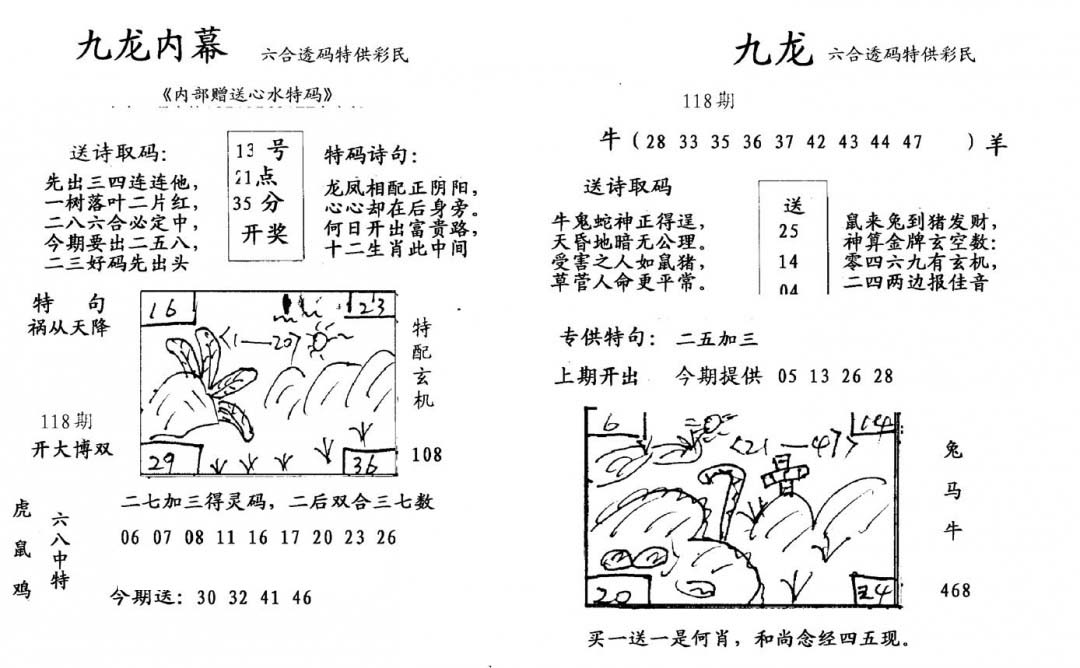 九龙内幕 六合透码特供彩民
《内部赠送心水特码》
送诗取码：
先出三四连连他，
一树落叶二片红，
二八六合必定中，
今期要出二五八，
二三好码先出头
13 号
21 点
35 分
开奖
特码诗句：
龙凤相配正阴阳，
心心却在后身旁。
何日开出富贵路，
十二生肖此中间
特 句
祸从天降
118期
开大博双
16
23
<1—20>
29
36
特配玄机
108
虎鼠鸡
六八中特
二七加三得灵码，二后双合三七数
06 07 08 11 16 17 20 23 26
今期送：30 32 41 46
九龙 六合透码特供彩民
118期
牛（28 33 35 36 37 42 43 44 47 ）羊
送诗取码
牛鬼蛇神正得逞，
天昏地暗无公理。
受害之人如鼠猪，
草菅人命更平常。
送
25
14
04
鼠来兔到猪发财，
神算金牌玄空数：
零四六九有玄机，
二四两边报佳音
专供特句： 二五加三
上期开出 今期提供 05 13 26 28
6
14
<21—47>
20
24
兔
马
牛
468
买一送一是何肖，和尚念经四五现。